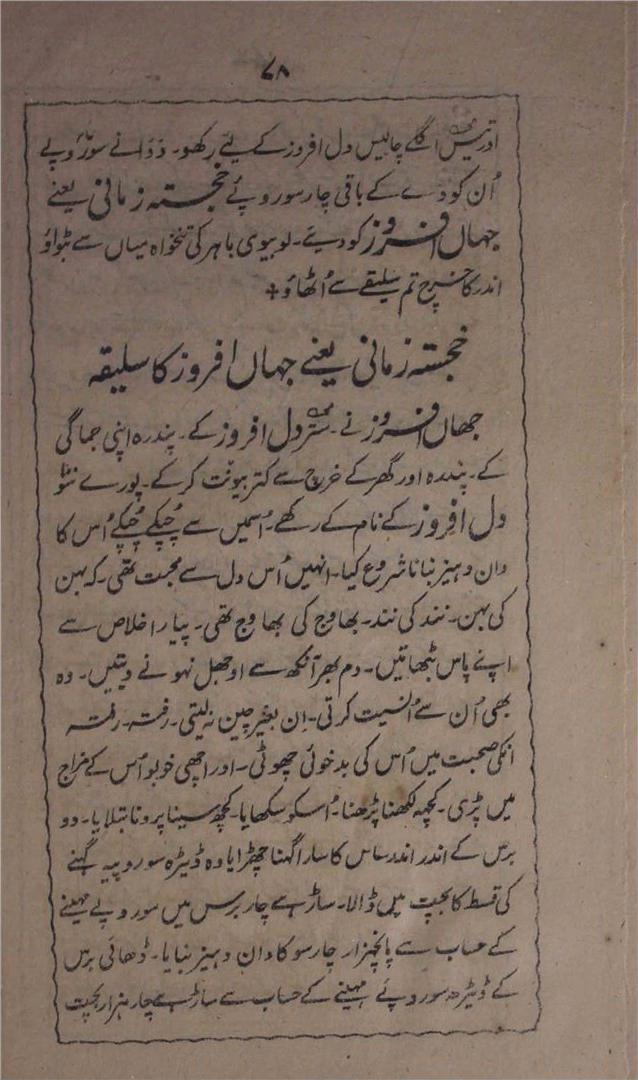 ۷۸
اور تیس اگلے چالیس دل افروز کے لیے رکھو۔ دَدا نے سَو روپے
اُن کو دے کے باقی چار سو روپے خجستہ زمانی یعنے
جہاں افروز کو دیے۔ لو بیوی باہر کی تنخواہ میاں سے بٹواؤ
اندر کا خرچ تم سلیقے سے اُٹھاؤ +
خجستہ زمانی یعنے جہاں افروز کا سلیقہ
جھاں افروز نے۔ ستر دل افروز کے۔ پندرہ اپنی جماگی
کے۔ پندہ اور گھر کے خرچ سے کتر بیونت کر کے۔ پورے سَو
دل افروز کے نام کے رکھے۔ اُسمیں سے چُپکے چُپکے اُس کا
دان دہیز بنانا شروع کیا۔ انہیں اُس دل سے محبت تھی۔ کہ بہن
کی بہن۔ نند کی نند۔ بھاوج کی بھاوج تھی۔ پیار اخلاص سے
اپنے پاس بٹھاتیں۔ دم بھر آنکھ سے اوجھل نہونے دیتیں۔ وہ
بھی اُن سے اُنسیت کرتی۔ اِن بغیر چین نہ لیتی۔ رفتہ۔ رفتہ
انکی صحبت میں اُس کی بدخوئی چھوٹی۔ اور اچھی خوبو اُس کے مزاج
میں پڑی۔ کچھ لکھنا پڑھنا۔ اُسکو سکھایا۔ کچھ سینا پرونا بتلایا۔ دو
برس کے اندر اندر ساس کا سارا گہنا چھڑایا وہ ڈیڑہ سو روپیہ گہنے
کی قسط کا بچت میں ڈالا۔ ساڑھے چار برس میں سو روپے مہینے
کے حساب سے پانچہزار چار سو کا دان دہیز بنایا۔ ڈھائی برس
کے ڈیڑھ سو روپئے مہینے کے حساب سے ساڑھے چار ہزار بچت